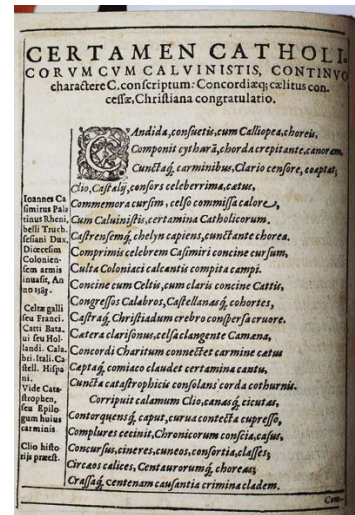 CERTAMEN CATHOLI-
CORVM CVM CALVINISTIS, CONTINVO
charactere C. conscriptum: Concordiæq; cælitus con-
cessæ, Christiana congratulatio.
Candida, consuetis, cum Calliopea, choreis,
Componit cytharā, chorda crepitante, canoram,
Cunctaq́; carminibus, Clario censore, coaptat;
Clio, Castalij, consors celeberrima, cætus,
Commemora cursim, celso commissa calore,
Cum Caluinistis, certamina Catholicorum.
Castrensemq́; chelyn capiens, cunctante chorea.
Comprimis celebrem Casimiri concine cursum,
Culta Coloniaci calcantis compita campi.
Concine cum Celtis, cum claris concine Cattis,
Congressos Calabros, Castellanasq́; cohortes,
Castraq́; Christiadum crebro conspersa cruore.
Cætera clarisonus, celsa clangente Camæna,
Concordi Charitum connectet carmine cætus
Captaq́; comiaco claudet certamina cantu,
Cuncta catastrophicis consolans corda cothurnis.
Corripuit calamum Clio, canasq́; cicutas,
Contorquensq́; caput, curua contecta cupresso,
Complures cecinit, Chronicorum conscia, casus,
Concursus, cineres, cuneos, consortia, classes;
Circæos calices, Centaurorumq́; choreas;
Crassaq́; Centenam causantia crimina cladem.
Com-
Ioannes Ca
simirus Pala
tinus Rheni,
belli Truch-
sesiani Dux,
Diœcesim
Colonien-
sem armis
inuasit, An
no 1583.
Celtæ galli
seu Franci.
Catti Bata.
ui seu Hol-
landi. Cala.
bri. Itali. Ca-
stell. Hispa
ni.
Vide Cata-
strophen,
seu Epilo-
gum huius
carminis
Clio histo-
rijs præest.